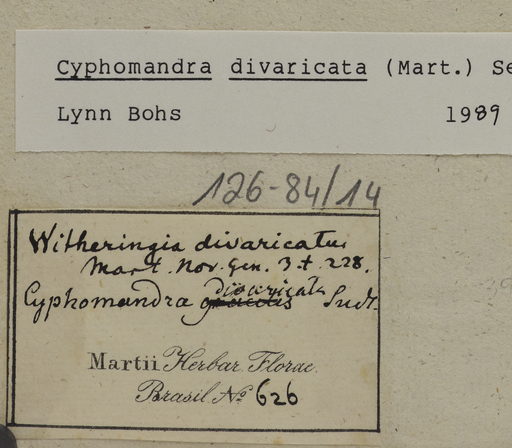 Cyphomandra divaricata (Mart.) Se
Lynn Bohs 1989
126-84/14
Witheringia divaricatus
Mart. Nov. Gen. 3. t. 228.
divaricata
Cyphomandra Sudt.
Martii Herbar. Florae
Brasil No 626